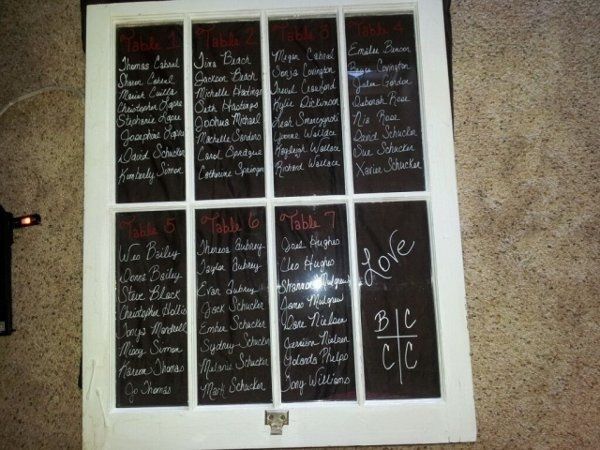 Table 1
Thomas Cabral
Sharon Cabral
Mariah Cuilla
Christopher Lopes
Stephanie Lopes
Josephine Lopes
David Schucker
Kimberly Simon
Table 2
Tina Beach
Jackson Beach
Michelle Hastings
Seth Hastings
Joshua Michael
Michelle Sanders
Carol Sprague
Catherine Springer
Table 3
Megan Cabral
Sonja Covington
Trevil Crawford
Kylie Dickinson
Leah
Yvonne Wallace
Kayleigh Wallace
Richard Wallace
Table 4
Emalee Benson
Bryce Covington
Jalen Gordon
Deborah Rose
Nia Rose
David Schucker
Sue Schucker
Xavier Schucker
Table 5
Wes Bailey
Donna Bailey
Steve Black
Christopher Hollis
Tonya Mandrell
Macy Simon
Kareem Thomas
Jo Thomas
Table 6
Theresa Aubrey
Taylor Aubrey
Evan Aubrey
Jack Schucker
Ember Schucker
Sydney Schucker
Melanie Schucker
Mark Schucker
Table 7
Joel Hughes
Cleo Hughes
Shannon Mulgrew
James Mulgrew
Dane Nielsen
Nielsen
Yolanda Phelps
Tony Williams
Love
B C
C C